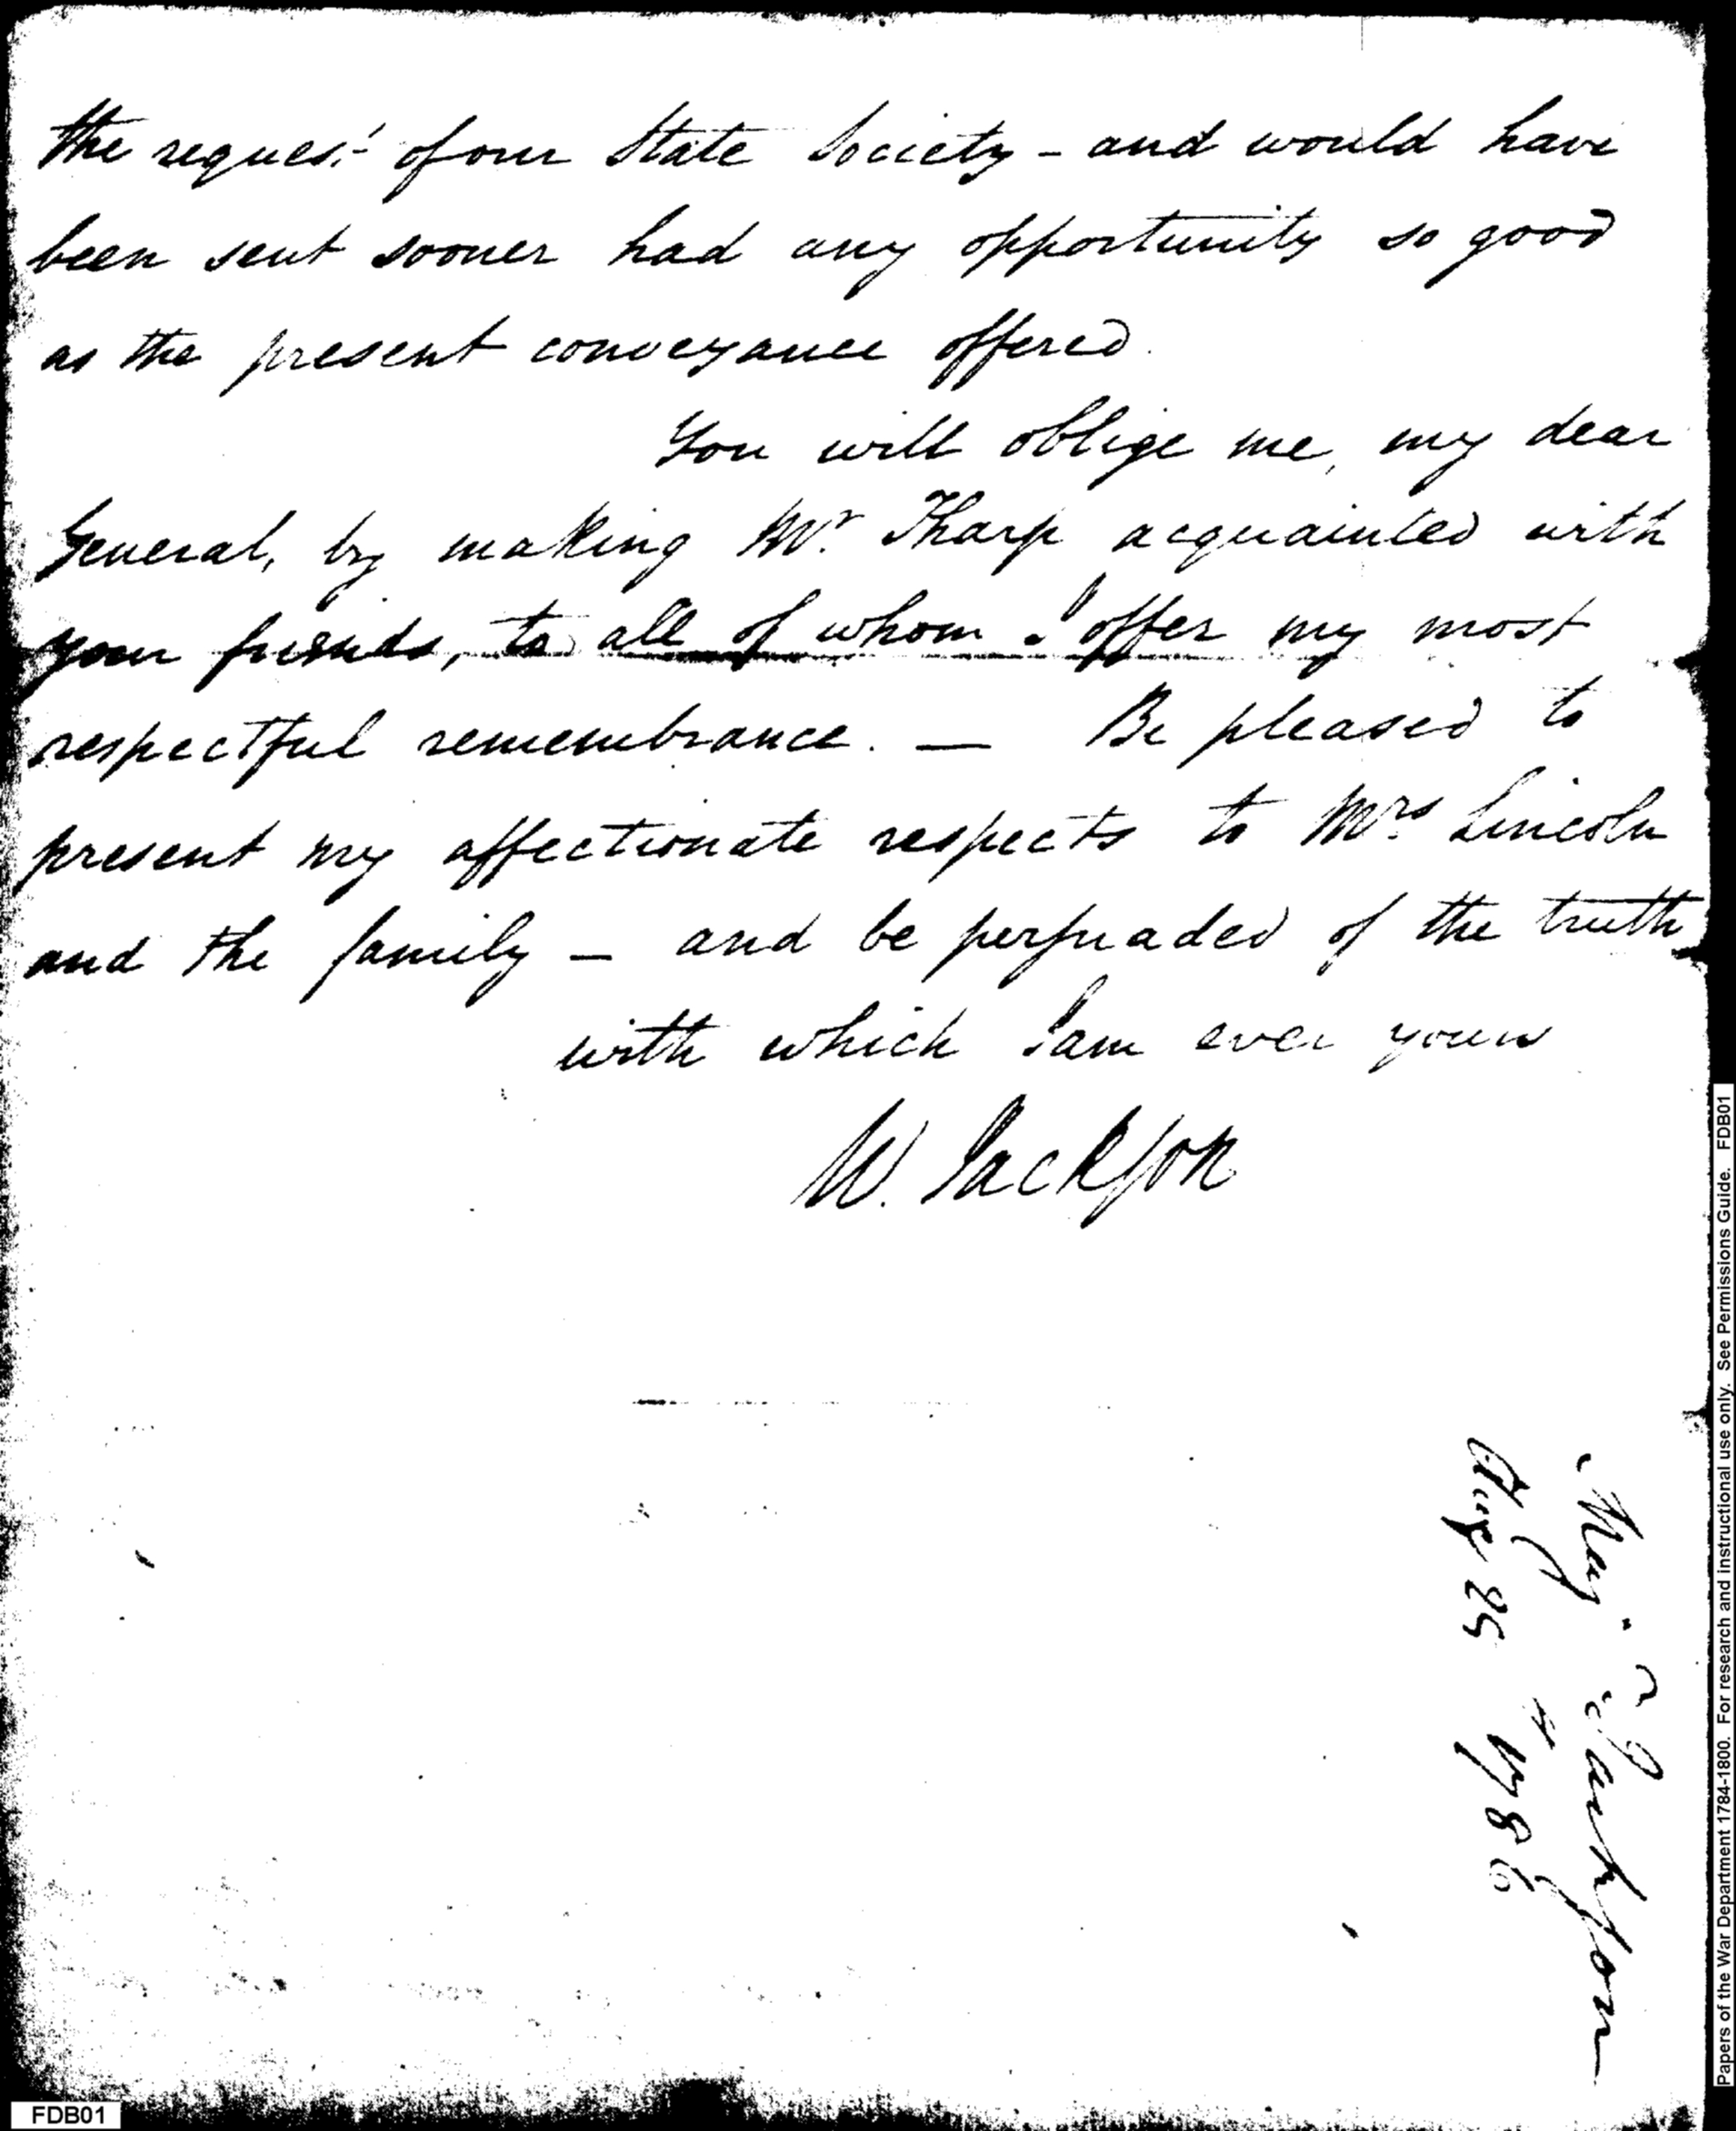 the request of our State Society - and would have
been sent sooner had any opportunity so good
as the present conveyance offered.
You will oblige me, my dear
General, by making Mr. Tharp acquainted with
your friends, to all of whom I offer my most
respectful remembrance. — Be pleased to
present my affectionate respects to Mrs. Lincoln
and the family - and be perſuaded of the truth
with which I am ever yours
W. Jackſon
Maj. Jackſon
Aug 25 1786
Papers of the War Department 1784-1800. For research and instructional use only. See Permissions Guide. FDB01
FDB01